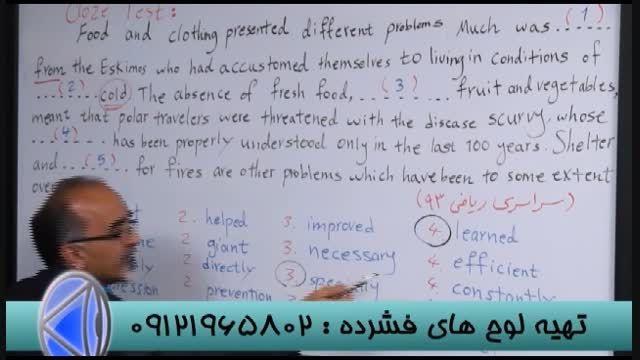 Cloze Test:
Food and clothing presented different problems. Much was ...(1)...
from the Eskimos who had accustomed themselves to living in conditions of
...(2)... cold. The absence of fresh food, ...(3)... fruit and vegetables,
meant that polar travelers were threatened with the disease scurvy, whose
...(4)... has been properly understood only in the last 100 years. Shelter
and ...(5)... for fires are other problems which have been to some extent
(سراسری ریاضی ۹۳)
2. helped 3. improved 4. learned
2. giant 3. necessary 4. efficient
2. directly 3. specially 4. constantly
2. prevention
تهیه لوح های فشرده : ۰۹۱۲۱۹۶۵۸۰۲